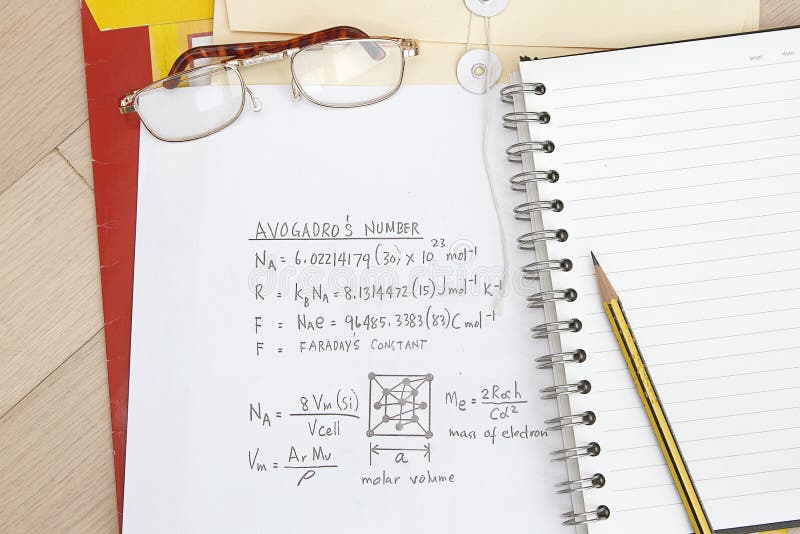 page: date:
AVOGADRO'S NUMBER
N_A = 6.02214179(30) x 10^23 mol^-1
R = k_B N_A = 8.1314472(15) J mol^-1 K^-1
F = N_A e = 96485.3383(83) C mol^-1
F = FARADAY'S CONSTANT
N_A = 8 V_m (Si) / V_cell
M_e = 2R∞h / Cα^2
mass of electron
V_m = A_r M_u / ρ
a
molar volume